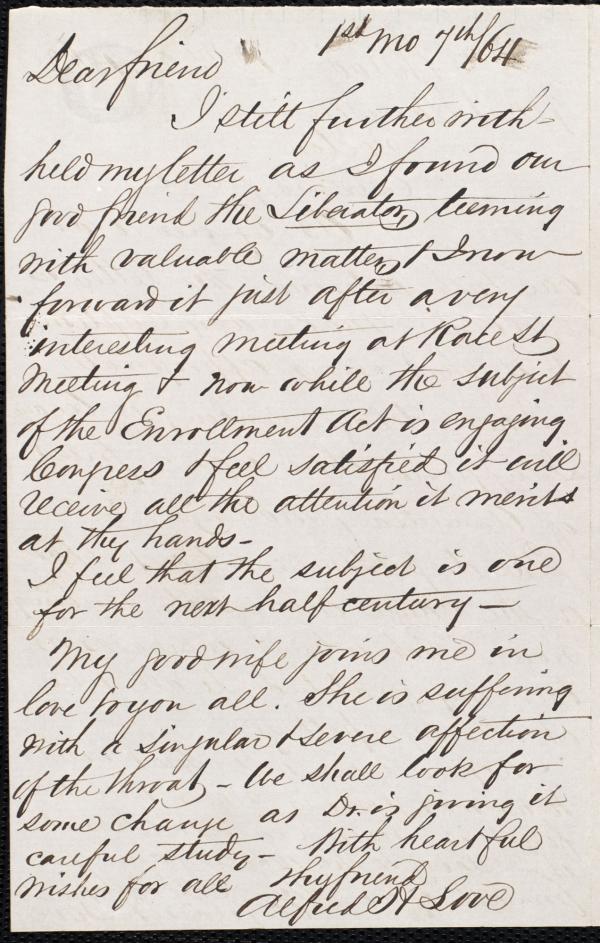 1st mo 7th/64
Dear friend
I still further with-
held my letter as I found our
good friend the Liberator, teeming
with valuable matter, & I now
forward it just after a very
interesting meeting at Race St
Meeting & now while the subject
of the Enrollment Act is engaging
Congress I feel satisfied it will
receive all the attention it merits
at thy hands -
I feel that the subject is one
for the next half century -
My good wife joins me in
love to you all. She is suffering
with a singular & severe affection
of the throat - We shall look for
some change as Dr. is giving it
careful study - With heartful
wishes for all thy friend
Alfred H Love